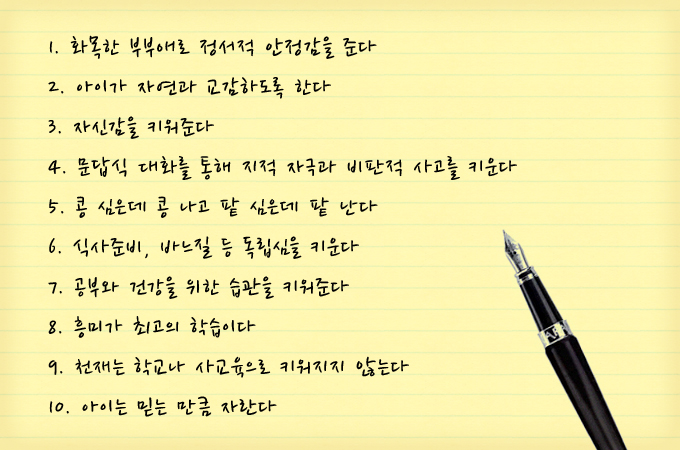 1. 화목한 부부애로 정서적 안정감을 준다
2. 아이가 자연과 교감하도록 한다
3. 자신감을 키워준다
4. 문답식 대화를 통해 지적 자극과 비판적 사고를 키운다
5. 콩 심은데 콩 나고 팥 심은데 팥 난다
6. 식사준비, 바느질 등 독립심을 키운다
7. 공부와 건강을 위한 습관을 키워준다
8. 흥미가 최고의 학습이다
9. 천재는 학교나 사교육으로 키워지지 않는다
10. 아이는 믿는 만큼 자란다